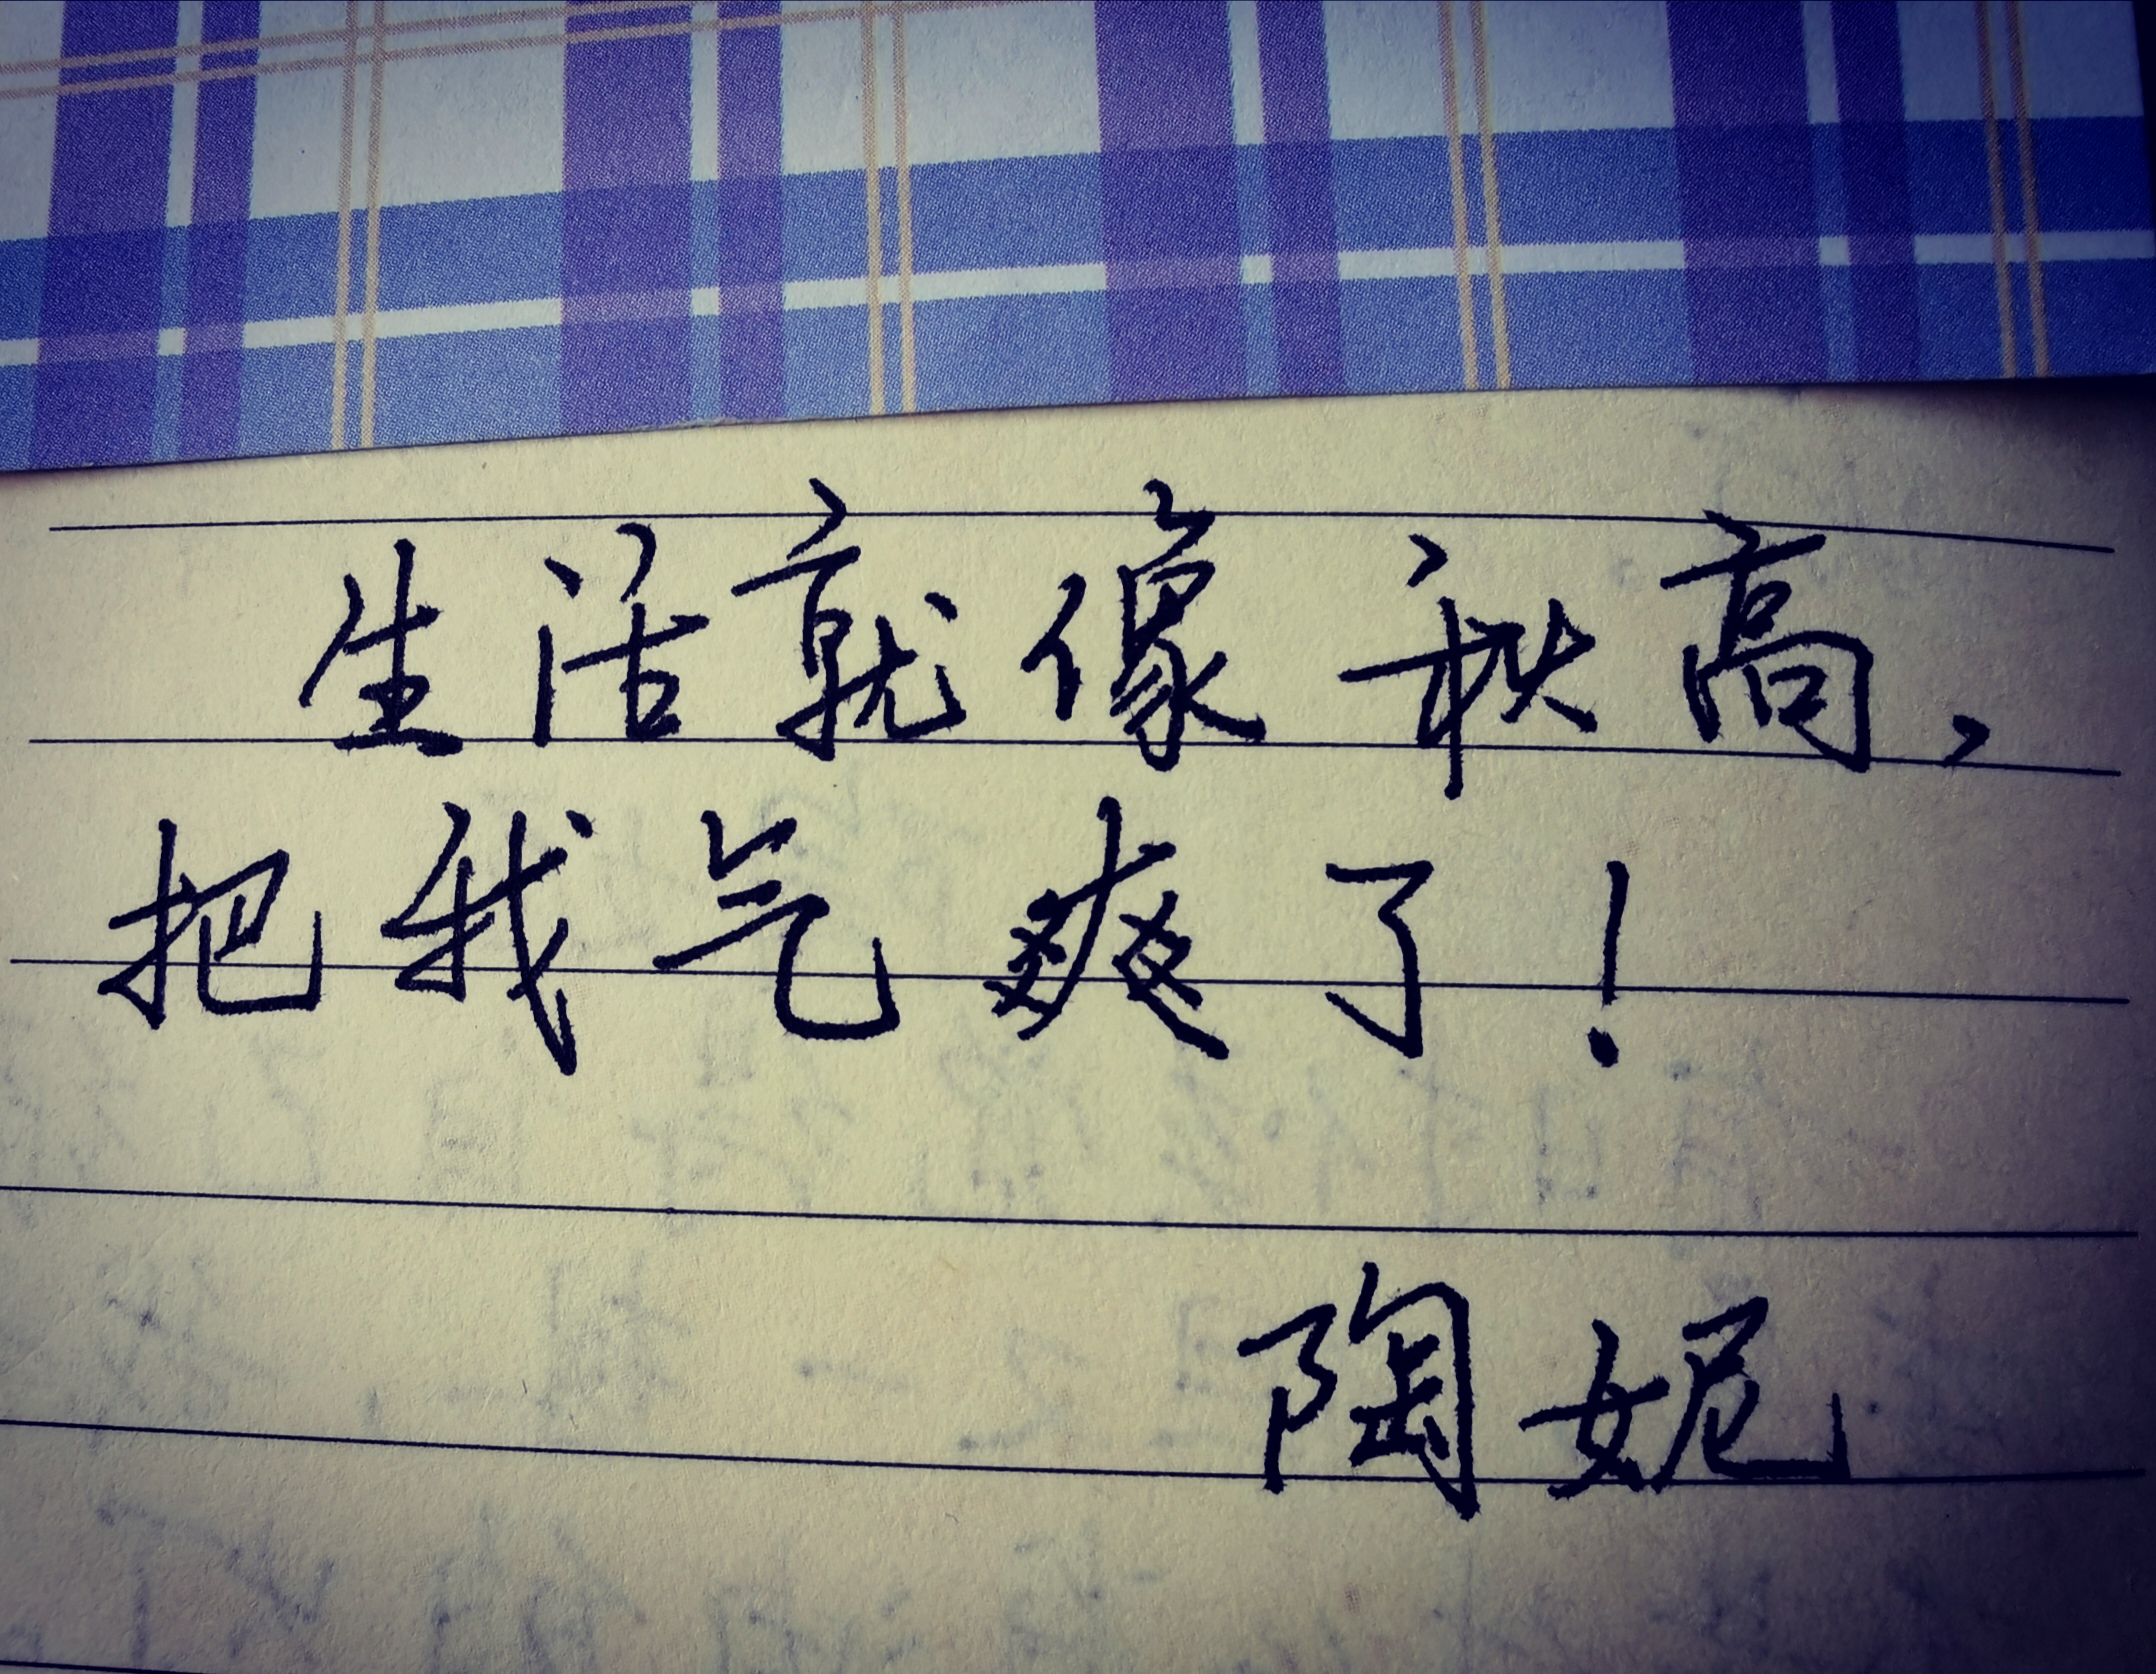 生活就像秋高,
把我气爽了!
陶妮